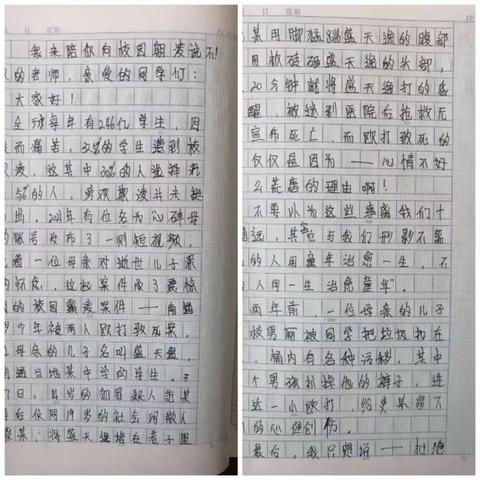 日 星期
我来陪你向校园朗凌说不!
的老师，亲爱的同学们：
大家好！
全球每年有2.46亿学生，因
而痛苦，32%的学生遭到校
凌，这其中30%的人选择
5%的人，男孩欺凌并未
出，2021年有位名为心碎母
的账号发布了一则短视频，
着一位母亲对逝世儿子
的怀念，这起案件成了震惊
的校园霸凌案件——
少年被两人欧打致死案，
母亲的儿子名叫盛天
通当地某中学的学生，于
日，岁的
后伙同19岁的社会闲散人
某，将盛天 堵在巷子里
日 星期
某用脚猛踹盛天 的腹部
用板砖砸盛天 的头部，
20分钟就将盛天 打的
醒，被送到医院后抢救无
宣布死亡，而欧打致死的
仅仅是因为——心情不好
么荒唐的理由啊！
不要以为这些 离我们十
遥远，其 与我们形影不离
的人用童年治愈一生，不
人用一生治愈童年”。
两年前，一位母亲的儿子
校男厕被同学把垃圾扣在
，桶内有各种污秽，其中
个男孩扒掉他的裤子，进
这一小欧打，给史某留下
的心理创伤。
最后，我只想说——杜绝